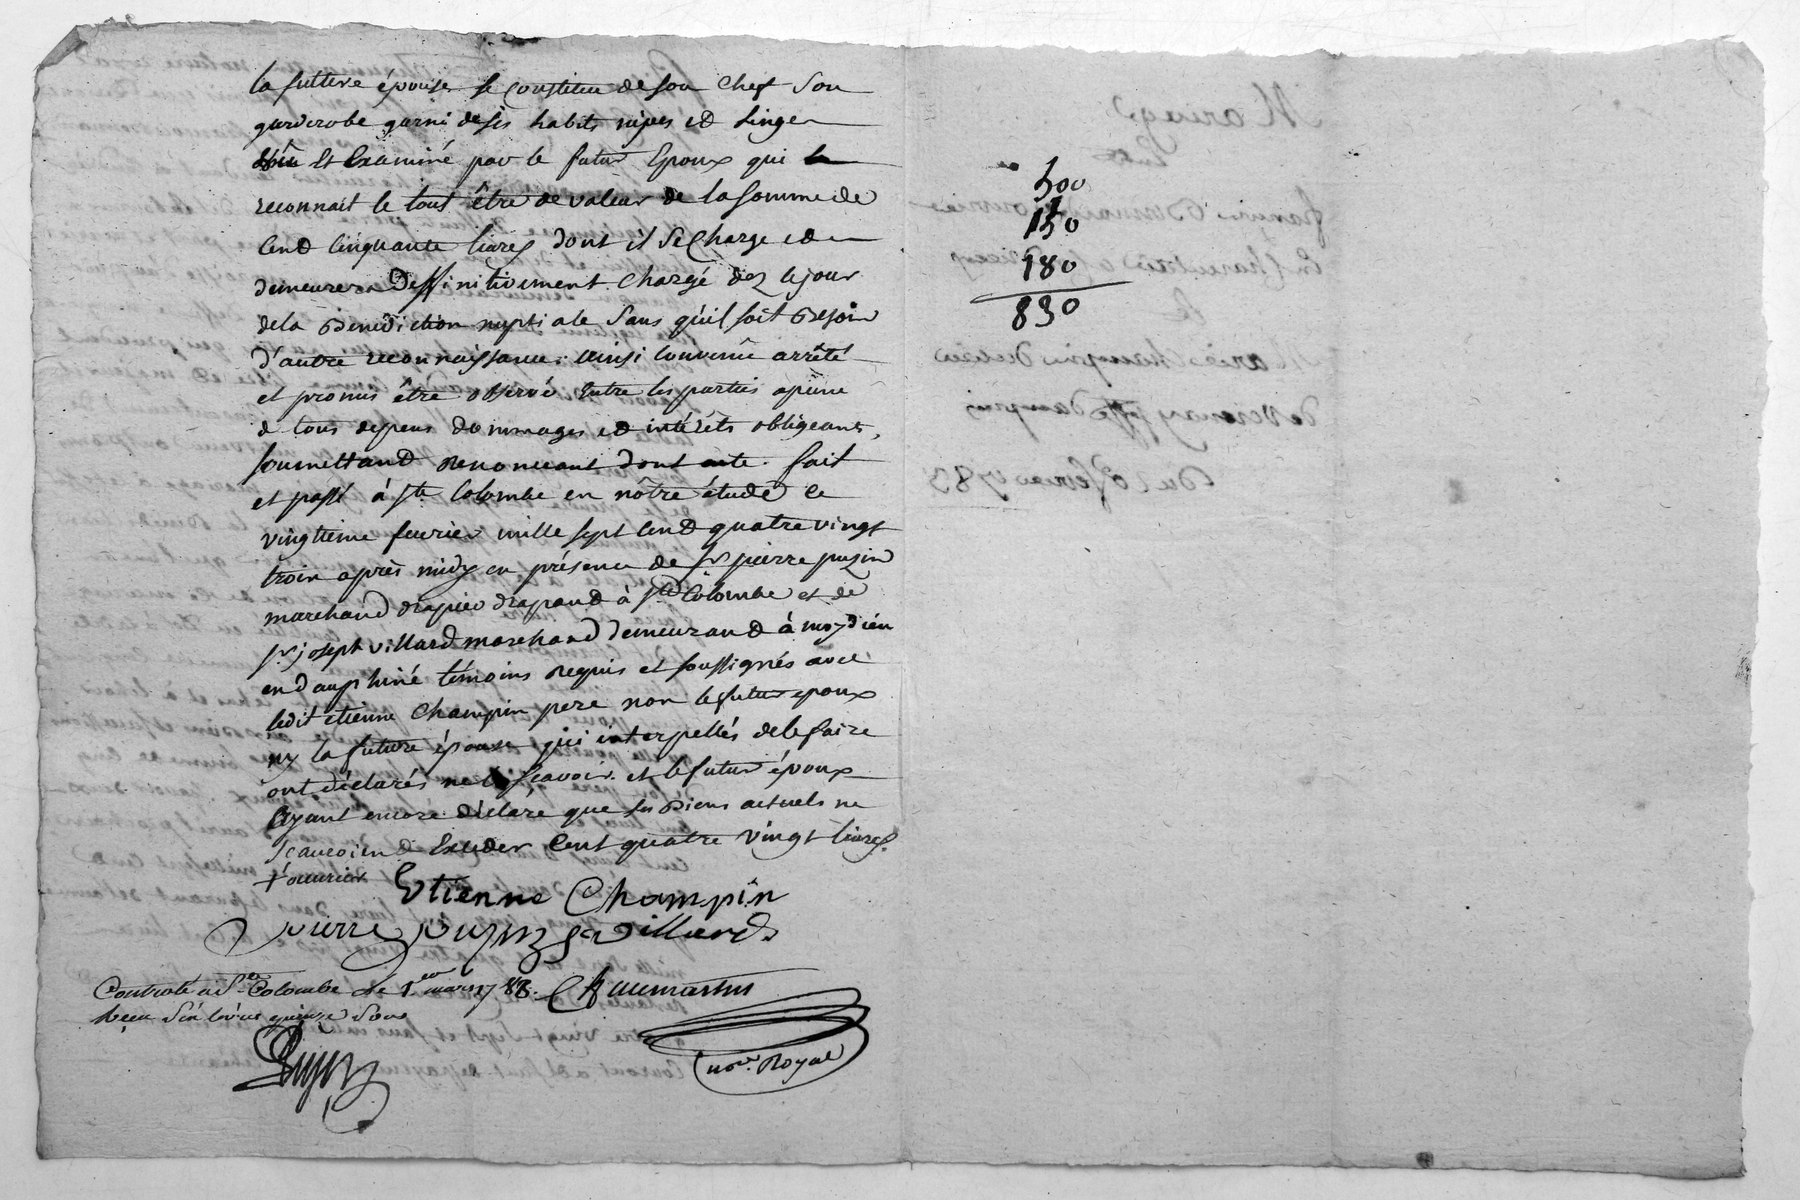 la future épouse se constitue de son chef son
garderobe garni de ses habits nipes et linge
vû et Examiné par le futur Epoux qui
reconnait le tout être de valeur de la somme de
Cent Cinquante livres dont il se Charge et
demeurera Deffinitivement Chargé dez le jour
de la Benediction nuptiale Sans qu'il soit Besoin
d'autre reconnaissance. ainsi Convenû arrêté
et promis être observé Entre les parties apeine
de tous depens dommages et intérêts obligeants,
soumettant Renonceant dont acte. fait
et passé à Ste Colombe en nôtre étude Ce
vingtieme feuvrier mille sept Cent quatre vingt
trois après midy en présence de Sr pierre puzin
marchand drapier drapant à Ste Colombe et de
Sr joseph villard marchand demeurant à moydieu
en dauphiné témoins Requis et soussignés avec
ledit etienne Champin pere non le futur epoux
ny la future épouse qui interpellés de le faire
ont déclarés ne sçavoir. et le futur époux
Ayant encore déclaré que ses Biens actuels ne
sçauroient Exceder Cent quatre vingt livres.
Etienne Champin
pierre puzin villard
Controlé à Ste Colombe le 1er mars 1783.
Reçu Six livres quinze sous
nore. Royal
500
150
180
830